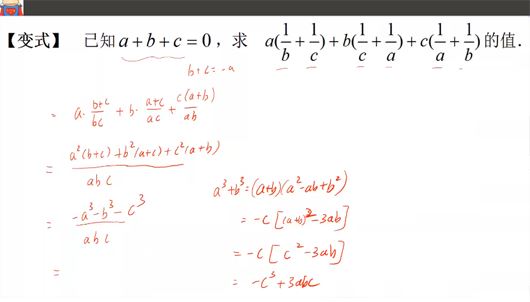 【变式】 已知 a+b+c=0，求 a(1/b+1/c)+b(1/c+1/a)+c(1/a+1/b) 的值.
b+c=-a
= a·(b+c)/bc + b·(a+c)/ac + c(a+b)/ab
= (a²(b+c)+b²(a+c)+c²(a+b))/abc
= (-a³-b³-c³)/abc
=
a³+b³=(a+b)(a²-ab+b²)
= -c[(a+b)²-3ab]
= -c[c²-3ab]
= -c³+3abc